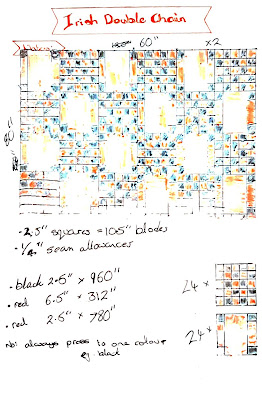 Irish Double Chain
60" x2
80"
• 2.5" squares = 10.5" blocks
• 1/4" seam allowances
• black 2.5" x 960"
• red 6.5" x 312"
• red 2.5" x 780"
Nb: always press to one colour
eg. black
24 x
24 x